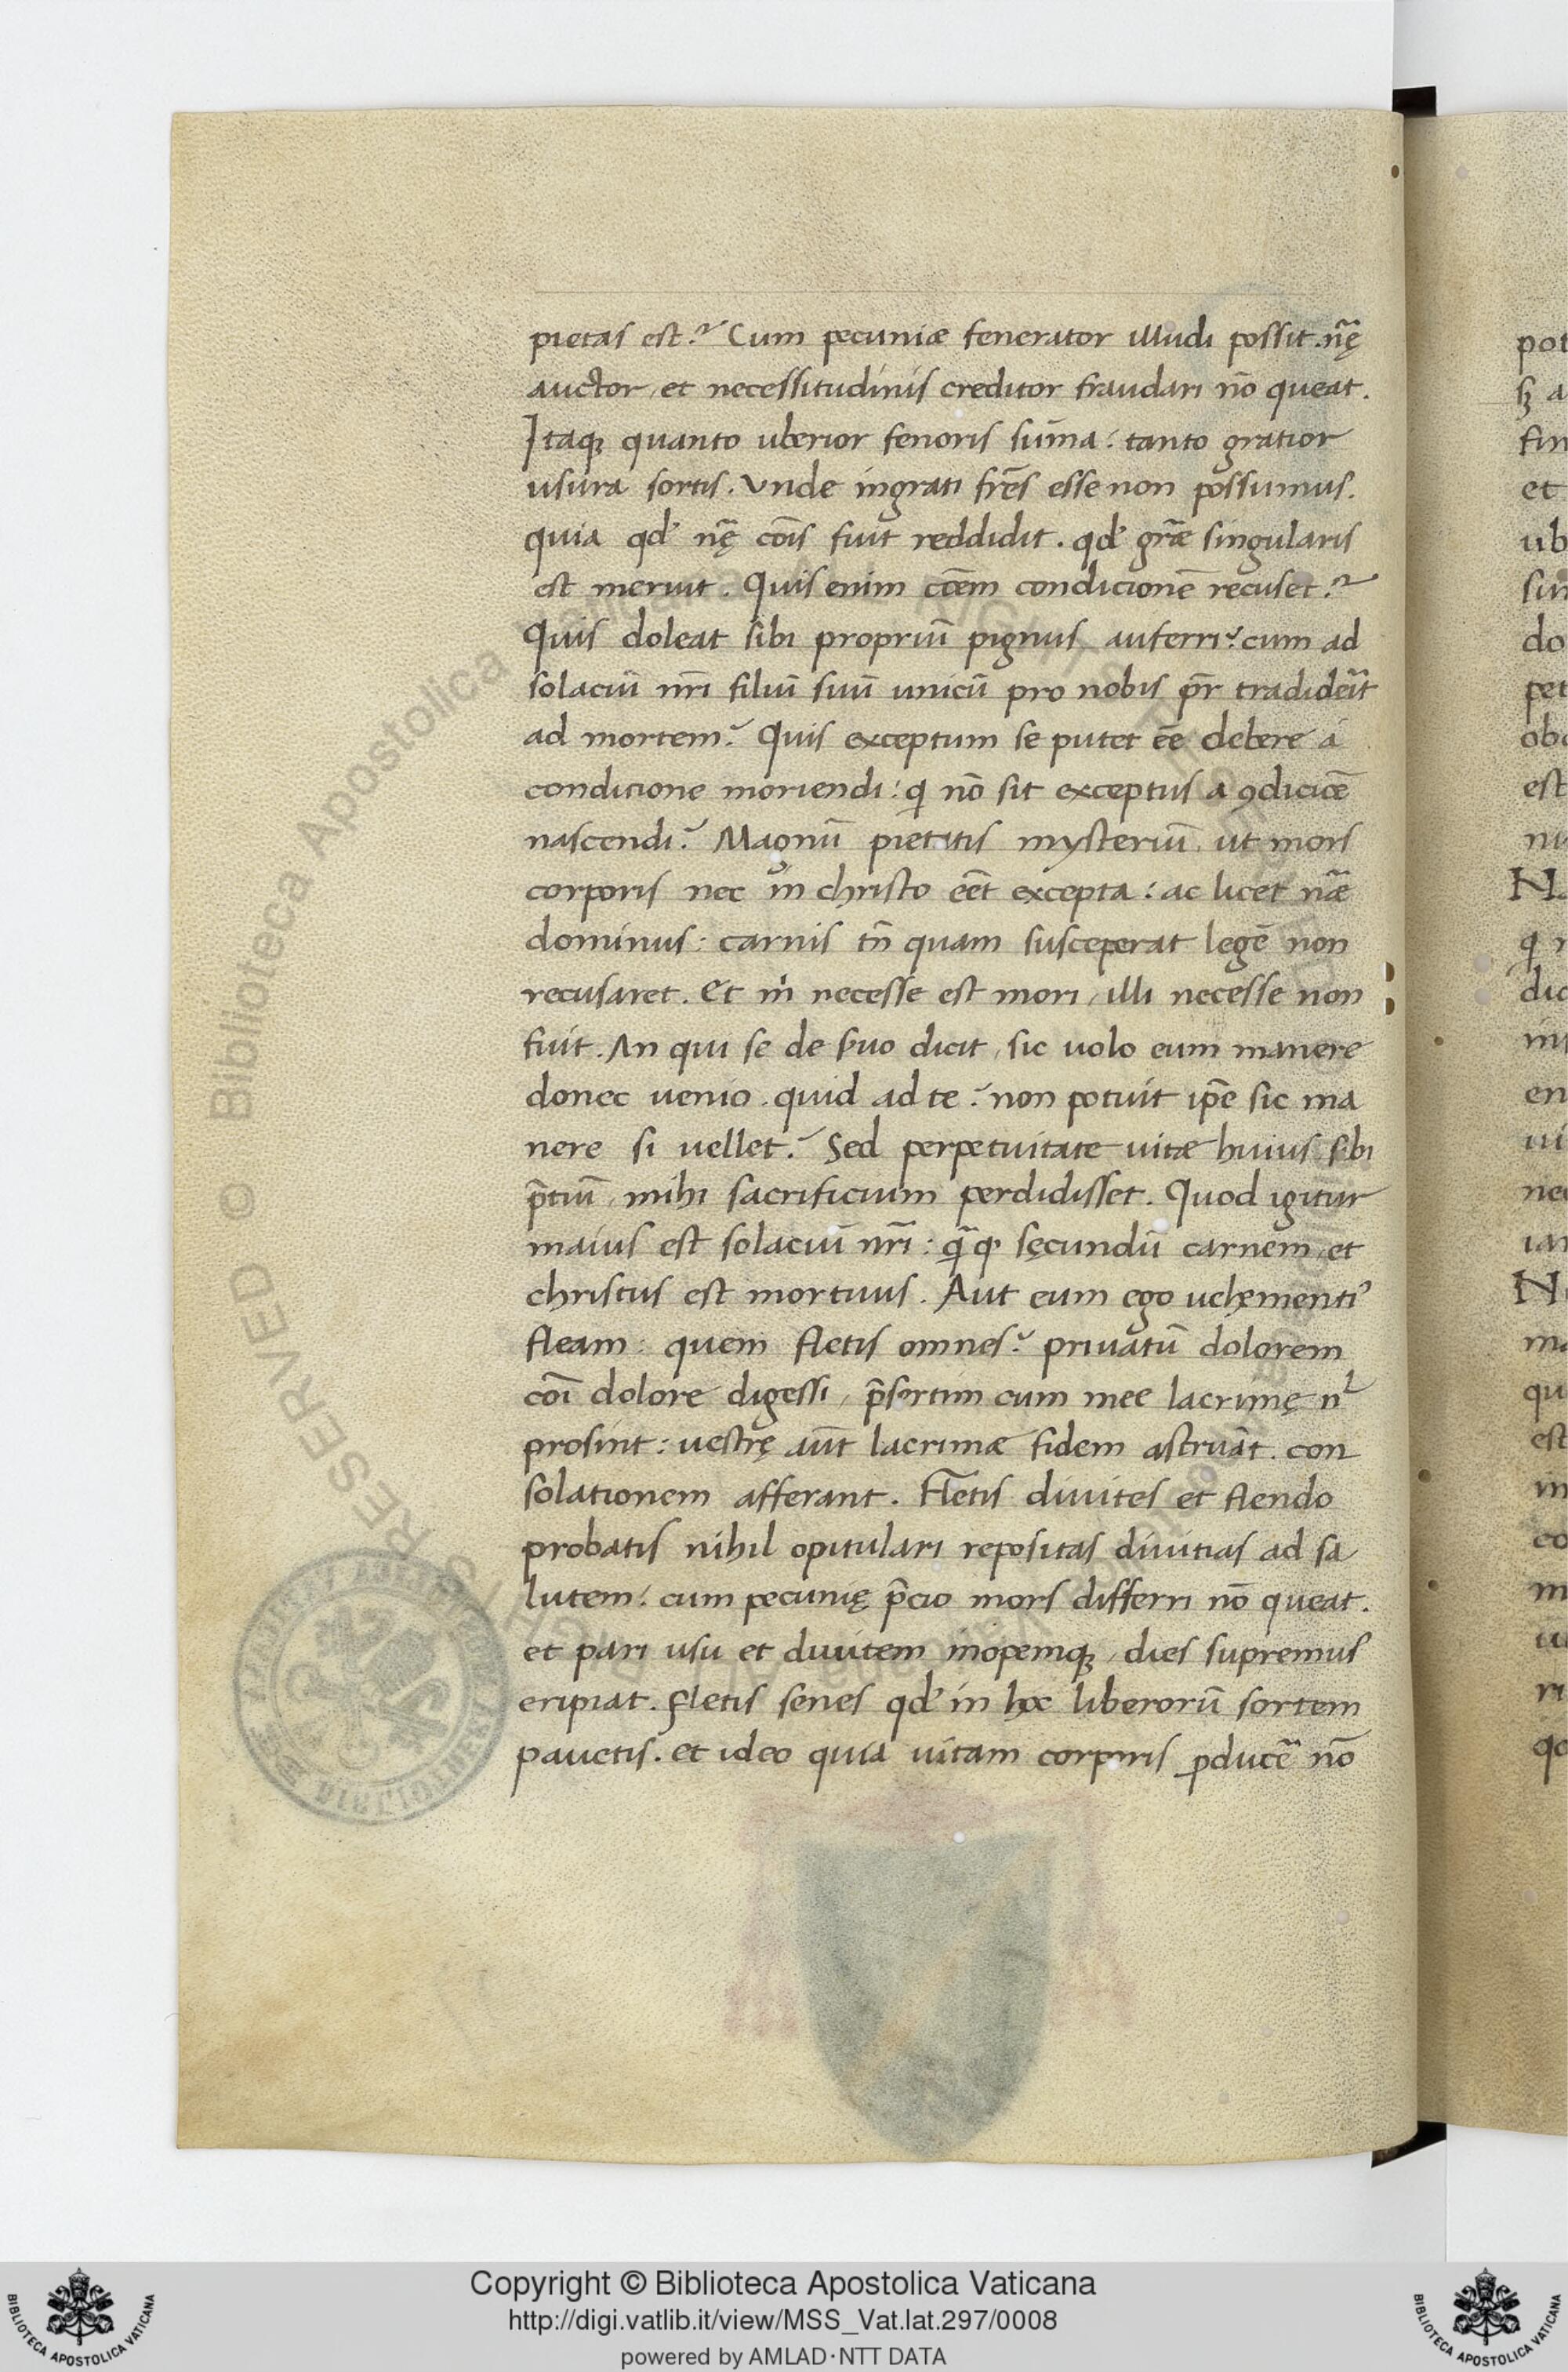 pietas est? Cum pecuniæ fenerator illudi possit. nr̄ę
auctor, et necessitudinis creditor fraudari nō queat.
Itaqꝫ quanto uberior fenoris sum̄a: tanto gratior
usura sortis. Vnde ingrati fr̄es esse non possumus.
quia qd' nr̄ę cōis fuit reddidit. qd' gr̄æ singularis
est meruit. Quis enim condicionē recuset?
Quis doleat sibi propriū pignus auferri? cum ad
solaciū nr̄i filiū suū unicū pro nobis pr̄ tradideīt
ad mortem? Quis exceptum se putet eē debere á
condicione moriendi: qi nō sit exceptus a ꝯdiciōe
nascendi? Magnū pietatis mysteriū, ut mors
corporis nec in christo eēt excepta: ac licet nr̄æ
dominus: carnis tn̄ quam susceperat legē non
recusaret. Et mi necesse est mori, illi necesse non
fuit. An qui se de suo dicit, sic uolo eum manere
donec uenio. quid ad te? non potuit ip̄e sic ma
nere si uellet? Sed perpetuitate uitæ huius sibi
p̄tiū, mihi sacrificium perdidisset. Quod igitur
maius est solaciū nr̄i: qāqꝫ sęcundū carnem, et
christus est mortuus. Aut eum ego uehęmenti'
fleam: quem fletis omnes? priuatū dolorem
cōi dolore digessi, p̄sertim cum mee lacrimę nl
prosint: uestrę aūt lacrimæ fidem astruāt. con
solationem afferant. Fletis diuites et flendo
probatis nihil opitulari repositas diuitias ad sa
lutem: cum pecunię p̄cio mors differri nō queat.
et pari usu et diuitem inopemqꝫ, dies supremus
eripiat. Fletis senes qd' in hoc liberorū sortem
pauetis. et ideo quia uitam corporis ꝓducē nō
pot
fin
et
ub
do
pet
est
en
Copyright © Biblioteca Apostolica Vaticana
http://digi.vatlib.it/view/MSS_Vat.lat.297/0008
powered by AMLAD·NTT DATA
BIBLIOTECA APOSTOLICA VATICANA
BIBLIOTECA APOSTOLICA VATICANA